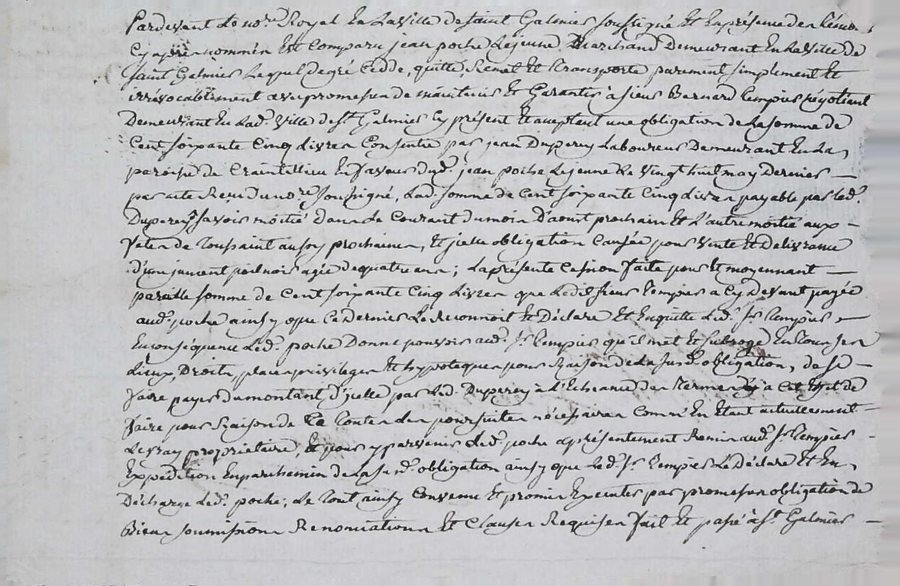 Pardevant Le nore Royal En La Ville de saint Galmier soussigné Et En présence des témoins
Cy après nommés Est Comparu jean poche Lejeune Marchand Demeurant En La Ville de
saint Galmier Lequel de gré Cedde, quitte, Remet Et transporte purement simplement Et
irrévocablement avec promesse de maintenir Et Garantir à sieur Bernard tempier négotiant
Demeurant En Lad. Ville de st. Galmier Cy présent Et acceptant une obligation de La somme de
Cent soixante Cinq Livres Consentie par jean Duperey Laboureur Demeurant En La
paroisse de Craintillieu En faveur dud. jean poche Lejeune Le Vingt huit may Dernier
par acte Reçu du nore soussigné, Lad. somme de Cent soixante Cinq Livres payable par Led.
Duperey savoir moitié dans le Courant du mois D'aoust prochain Et L'autre moitié aux
fetes de Toussaint aussy prochaines, Et jcelle obligation Causée pour Vente Et Delivrance
d'une jument poil noir agée de quatre ans; La présente Cession faite pour Et moyennant
pareille somme de Cent soixante Cinq Livres que Ledit sieur tempier a Cy Devant payée
aud. poche ainsy que Ce Dernier Le Reconnoit Et Déclare Et En quitte Led. sr. tempier
En conséquence Led. poche Donne pouvoir aud. sr. tempier qu'il met Et subroge En tous ses
Lieux, Droits, place privileges Et hypoteques pour Raison de La susd. obligation, de se
faire payer du montant d'jcelle par Led. Duperey à L'Echeance des termes à Cet Effet de
faire pour Raison de Ce toutes Les poursuites nécessaires Comme En Etant actuellement
Le Vray proprietaire, Et pour y parvenir Led. poche a présentement Remis aud. sr. tempier
Expedition En parchemin de La susd. obligation ainsy que Led. sr. tempier Le Déclare Et En
Décharge Led. poche; Le tout ainsy Convenu Et promis Executer par promesse obligation de
Biens soumissions Renonciations Et Clauses Requises fait Et passé à st. Galmier